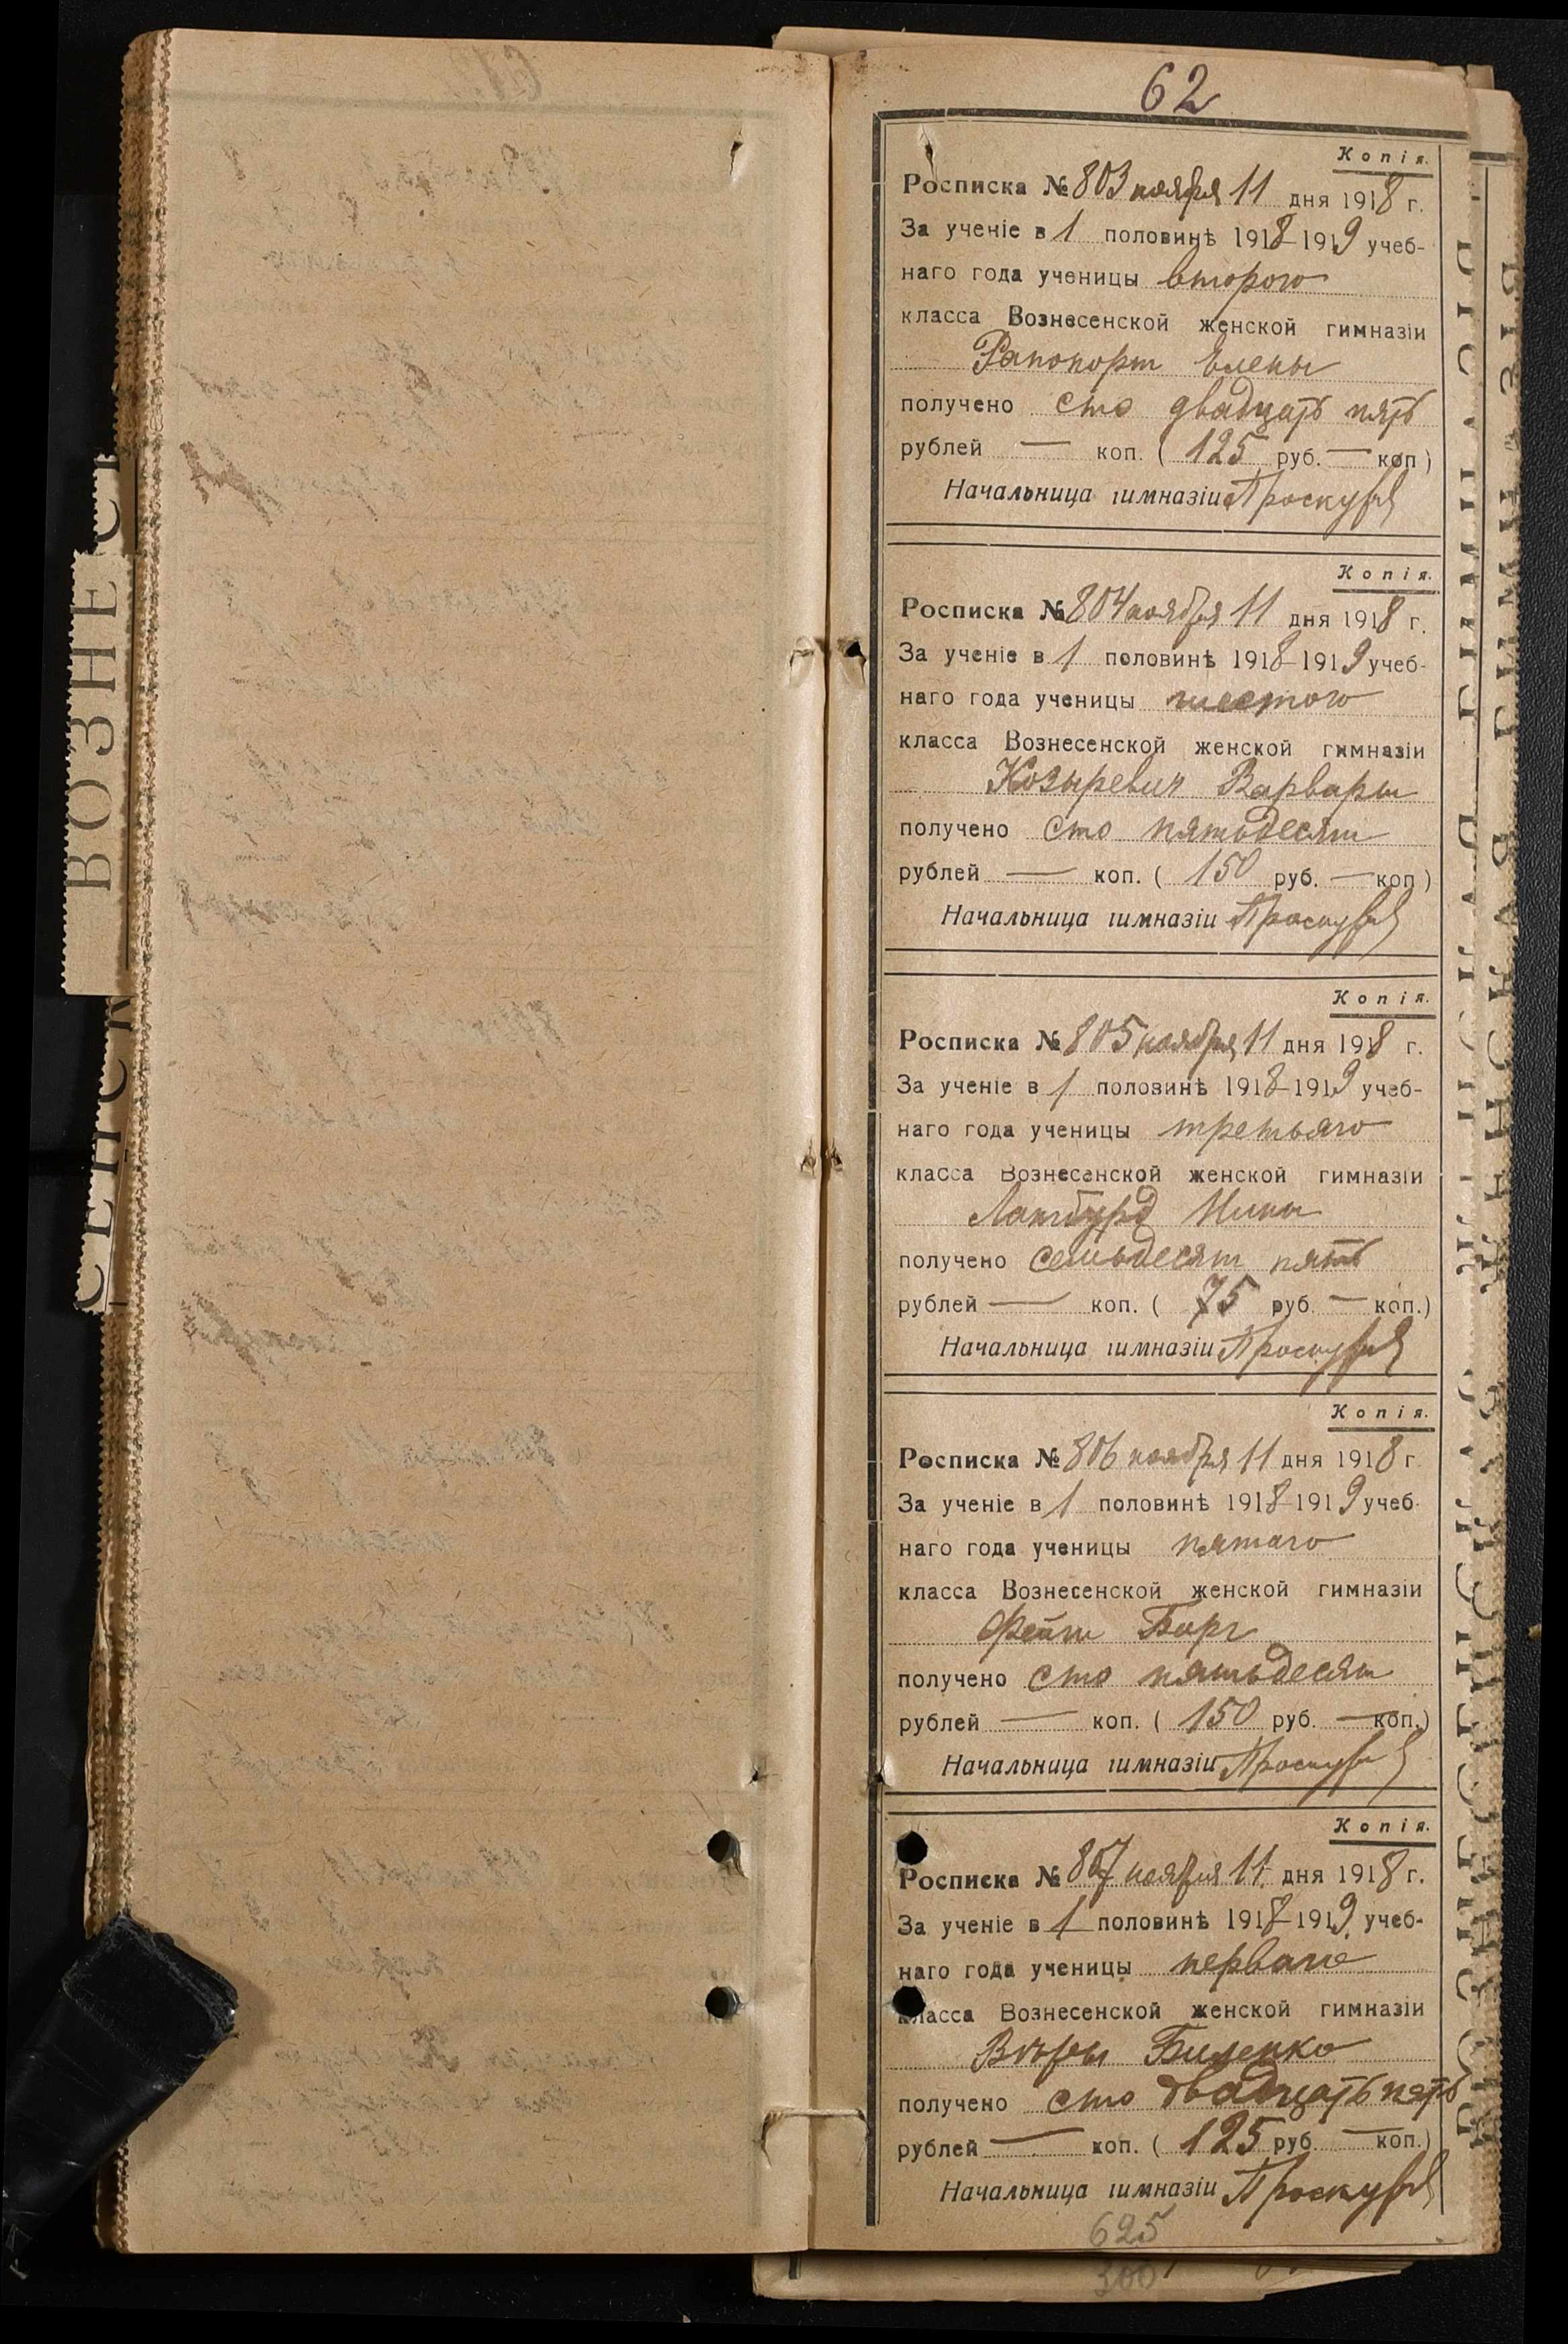 62
Копія.
Росписка № 803 ноября 11 дня 1918 г.
За ученіе в 1 половинѣ 1918-1919 учеб-
наго года ученицы второго
класса Вознесенской женской гимназіи
Рапопорт Елены
получено сто двадцать пять
рублей — коп. ( 125 руб. — коп )
Начальница гимназіи
Копія.
Росписка № 804 ноября 11 дня 1918 г.
За ученіе в 1 половинѣ 1918-1919 учеб-
наго года ученицы шестого
класса Вознесенской женской гимназіи
Козыревич Варвары
получено сто пятьдесят
рублей — коп. ( 150 руб. — коп )
Начальница гимназіи
Копія.
Росписка № 805 ноября 11 дня 1918 г.
За ученіе в 1 половинѣ 1918-1919 учеб-
наго года ученицы третьяго
класса Вознесенской женской гимназіи
Нины
получено семьдесят пять
рублей — коп. ( 75 руб. — коп.)
Начальница гимназіи
Копія.
Росписка № 806 ноября 11 дня 1918 г
За ученіе в 1 половинѣ 1918-1919 учеб-
наго года ученицы пятаго
класса Вознесенской женской гимназіи
получено сто пятьдесят
рублей — коп. ( 150 руб. — коп.)
Начальница гимназіи
Копія.
Росписка № 807 ноября 11 дня 1918 г.
За ученіе в 1 половинѣ 1918-1919 учеб-
наго года ученицы перваго
класса Вознесенской женской гимназіи
Вѣры Биленко
получено сто двадцать пять
рублей — коп. ( 125 руб. — коп.)
Начальница гимназіи
625
300
ВОЗНЕ